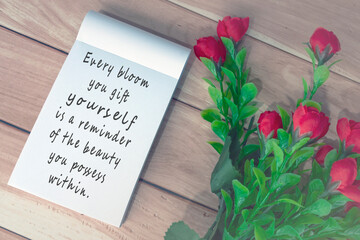 Every bloom
you gift
yourself
is a reminder
of the beauty
you possess
within.